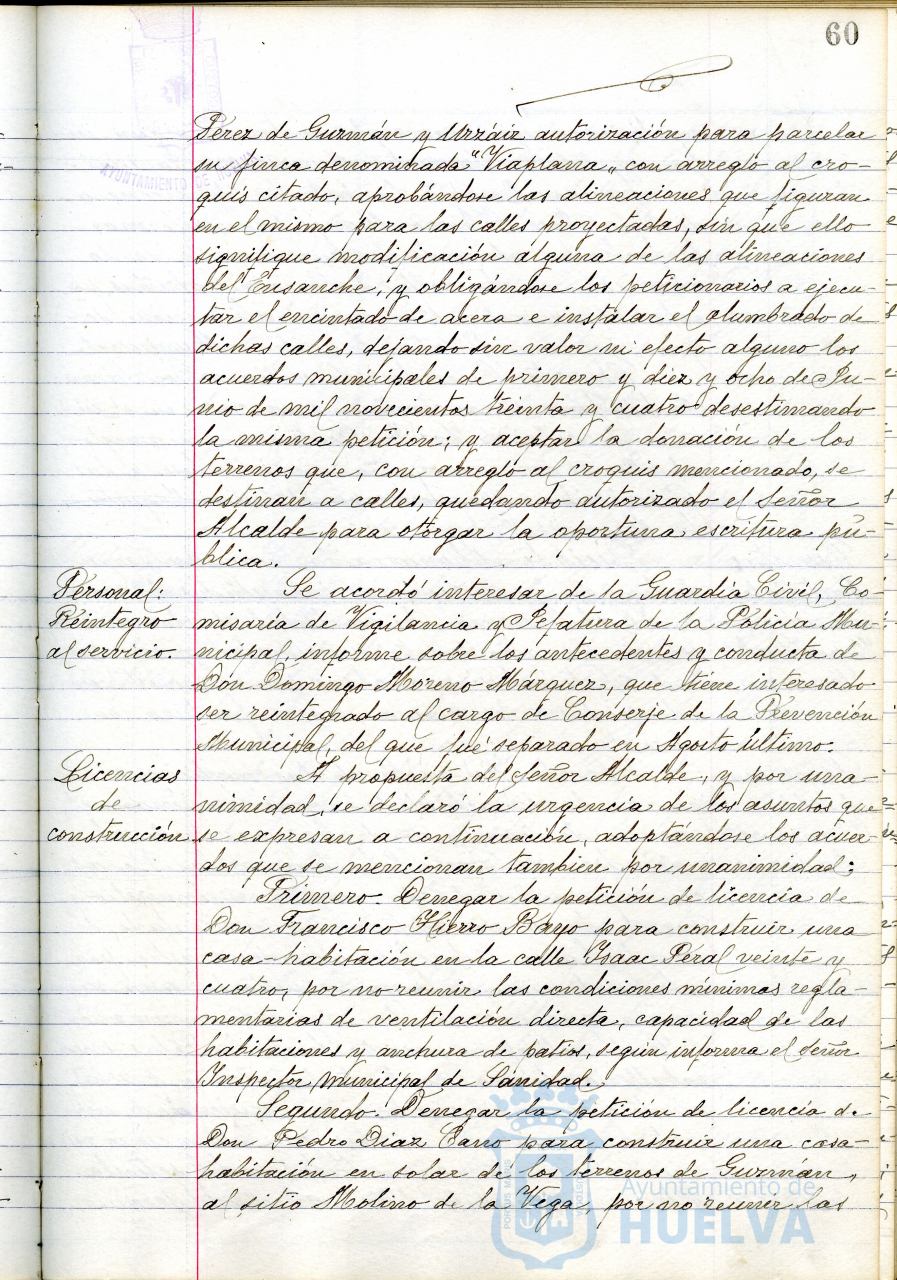 60
Pérez de Guzmán y Urzáiz autorización para parcelar
su finca denominada "Viaplana" con arreglo al cro-
quis citado, aprobándose las alineaciones que figuran
en el mismo para las calles proyectadas, sin que ello
signifique modificación alguna de las alineaciones
del Ensanche, y obligándose los peticionarios a ejecu-
tar el encintado de acera e instalar el alumbrado de
dichas calles, dejando sin valor ni efecto alguno los
acuerdos municipales de primero y diez y ocho de Ju-
nio de mil novecientos treinta y cuatro desestimando
la misma petición; y aceptar la donación de los
terrenos que, con arreglo al croquis mencionado, se
destinan a calles, quedando autorizado el Señor
Alcalde para otorgar la oportuna escritura pú-
blica.
Personal:
Reintegro
al servicio.
Se acordó interesar de la Guardia Civil, Co-
misaría de Vigilancia y Jefatura de la Policía Mu-
nicipal, informe sobre los antecedentes y conducta de
Don Domingo Moreno Márquez, que tiene interesado
ser reintegrado al cargo de Conserje de la Prevención
Municipal, del que fué separado en Agosto último.
Licencias
de
construcción
A propuesta del Señor Alcalde, y por una-
nimidad, se declaró la urgencia de los asuntos que
se expresan a continuación, adoptándose los acuer-
dos que se mencionan tambien por unanimidad:
Primero. Denegar la petición de licencia de
Don Francisco Hierro Bayo para construir una
casa-habitación en la calle Isaac Peral veinte y
cuatro, por no reunir las condiciones mínimas regla-
mentarias de ventilación directa, capacidad de las
habitaciones y anchura de patios, según informa el Señor
Inspector municipal de Sanidad.
Segundo. Denegar la petición de licencia de
Don Pedro Diaz Carro para construir una casa-
habitación en solar de los terrenos de Guzmán,
al sitio Molino de la Vega, por no reunir las
Ayuntamiento de
HUELVA